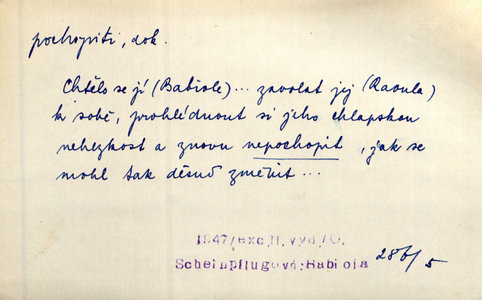 pochopiti, dok.
Chtělo se jí (Babiole)... zavolat jej (Raoula)
k sobě, prohlédnout si jeho chlapskou
nehezkost a znovu nepochopit, jak se
mohl tak děsně změnit...
1947/exc.II.vyd/O.
Scheinpflugová:Babiola
286/5